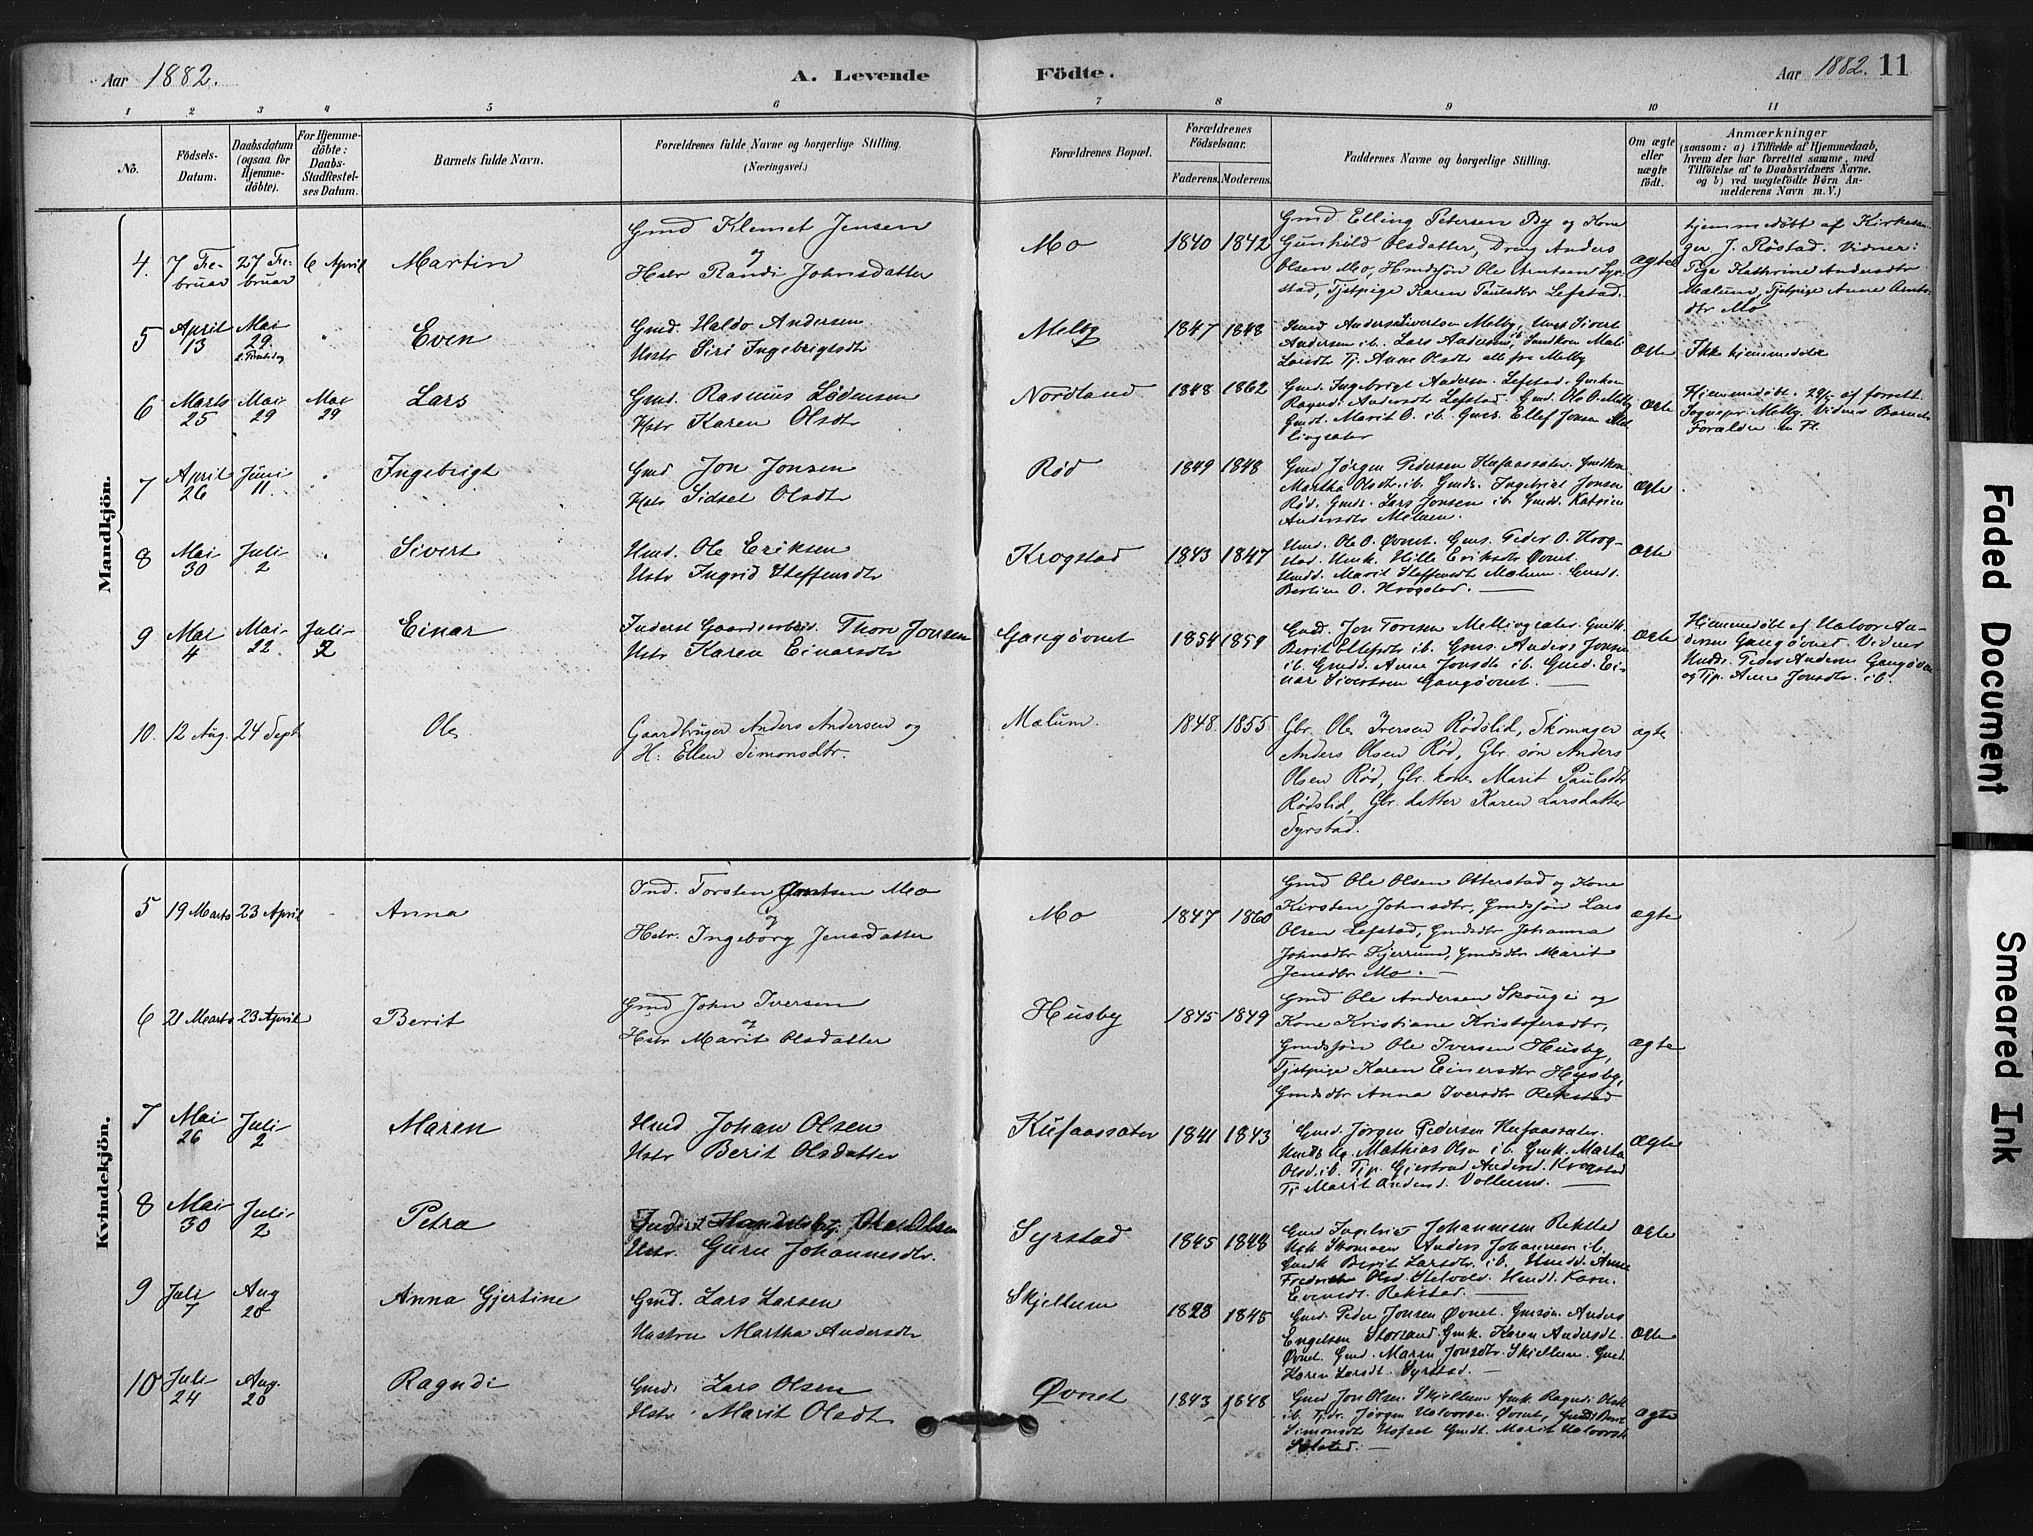 Aar 1882. A. Levende Födte. Aar 1882. 11
1 2 3 4 5 6 7 8 9 10 11
No.
Födsels-Datum.
Daabsdatum (ogsaa for Hjemmedöbte).
For Hjemmedöbte: Daabs-Stadfæstelses Datum.
Barnets fulde Navn.
Forældrenes fulde Navne og borgerlige Stilling.
(Næringsvei.)
Forældrenes Bopæl.
Forældrenes Födselsaar.
Faderens. Moderens.
Faddernes Navne og borgerlige Stilling.
Om ægte eller uægte födt.
Anmærkninger
(saasom: a) i Tilfælde af Hjemmedaab,
hvem der har forrettet samme, med
Tilföielse af to Daabsvidners Navne,
og b) ved uægtefödte Börn Anmelderens Navn m. V.)
Mandkjön.
4. 7 Februar 27 Februar 6 April Martin
Gmd Klemet Jensen
og
Hstr Randi Johnsdatter
Mo 1840 1842
Gmd. Elling Petersen By og Kone
Gunhild Olsdatter, Dreng Anders
Olsen Mo, Gmdsøn Ole Arntsen Syrstad,
Tjstpige Karen Paulsdtr Lefstad.
ægte
hjemmedöbt af Kirkesanger
J. Røstad. Vidner:
Pige Kathrine Andersdtr
Mælum, Tjstpige Anne Arntsdtr
Mo
5 April 13 Mai 29 2. Pintsedag " Even
Gmd. Haldo Andersen
Hustr Siri Ingebrigtsdt
Melby 1847 1848
Gmd Anders Sivertsen Melby, Sivert
Andersen ib. Lars Andersen, Gmdkone
Tj. Anne Olsdt alle fra Melby
ægte
Ikke hjemmedøbt
6 Marts 25 Mai 29 Mai 29 Lars
Gmd. Rasmus Lødensen
Hstr Karen Olsdtr
Nordland 1848 1862
Gmd. Ingebrigt Andersn. Lefstad. Gmkon
Ragnd. Andersdt Lefstad. Gmd. Ole O. Melby
Gmdt. Marit O. ib. Gms. Ellef Jonsen
ægte
Hjemmedøbt 29/3 af forrett.
Sognepr. Melby. Vidner Barnets
Forældre
7 April 26 Juni 11 " Ingebrigt
Gmd Jon Jonsen
Hstr Sidsel Olsdt
Rød 1849 1848
Gmd Jørgen Pedersen Kufaassæter. Gmdkon
Martha Olsdt. ib. Gmds. Ingebrigt Jonsen
Rød. Gmds. Lars Jonsen ib. Gmdt. Katrine
Andersdtr Melum.
ægte
8 Mai 30 Juli 2 " Sivert
Gmd. Ole Eriksen
Hstr Ingrid Steffensdtr
Krogstad 1843 1847
Gmd. Ole O. Øvnet. Gms. Peder O. Krogstad.
Gmk. Hille Eriksdtr Øvnet.
Gmdd. Marit Steffensdt Mælum. Gmdt.
Berlien O. Krogstad.
ægte
9 Mai 4 Mai 22 Juli 2 Einar
Inderst Gaardsarbeid. Thore Jonsen
Hstr Karen Einarsdtr
Gangøvnet 1854 1859
Gmd. Jon Toresen Mellingsæter. Gmdk.
Berit Ellefsdtr ib. Gms. Anders Jonsen
ib. Gmdd. Anne Jonsdtr ib. Gmd. Einar
Sivertsen Gangøvnet.
ægte
Hjemmedøbt af Halvor Andersen
Gangøvnet. Vidner
Gmds. Peder Andersen Gangøvnet
og Tjp. Anne Jonsdtr. ib.
10. 12 Aug. 24 Sept Ole
Gaardbruger Anders Andersen og
H: Ellen Simonsdtr.
Mælum. 1848 1855
Gbr. Ole Iversen Rødslid, Skomager
Anders Olsen Rød, Gbr. søn Anders
Olsen Rød, Gbr. kone Marit Paulsdtr
Rødslid, Gbr. datter Karen Larsdatter
Syrstad.
ægte
Kvindekjön.
5 19 Marts 23 April Anna
Ind. Torsten Mo
og
Hstr. Ingeborg Jensdatter
Mo 1847 1860
Gmd Ole Olsen Otterstad og Kone
Kirsten Johnsdtr, Gmdsjøn Lars
Olsen Lefstad, Gmdsdtr Johanna
Johnsdtr Kjerrum, Gmdsdtr Marit
Jensdtr Mo.
ægte
6 21 Marts 23 April Berit
Gmd John Iversen
og
Hstr Marit Olsdatter
Husby 1845 1849
Gmd Ole Andersen Skougi og
Kone Kristiane Kristofersdtr,
Gmdsjøn Ole Iversen Husby,
Tjstpige Karen Einersdtr Husby,
Gmdsdtr Anna Iversdtr Rekstad
ægte
7 Mai 26 Juli 2 Maren
Hmd Johan Olsen
Hstr Berit Olsdatter
Kufaassæter 1841 1843
Gmd. Jørgen Pedersen Kufaassæter.
Mathias Olsn ib. Gmk. Marta
Olsd. ib. Tjp. Gjertrud Andersd. Krogstad
Tj Marit Andersd. Vollum.
ægte
8 Mai 30 Juli 2 Petra
Inderst Ole Olsen
Hstr. Guru Johannesdtr.
Syrstad 1845 1848
Gmd Ingebrigt Johannesen Rekstad
Skomager Anders Johannesen ib.
Gmdk Berit Larsdtr ib. Gmdd. Anne
Fredrikke Olsd. Gmdt. Karn.
Evensdt. Rekstad.
ægte
9 Juli 7 Aug 20 Anna Gjertine
Gmd. Lars Larsen
Hustru Martha Andersdtr
Skjellum 1823 1845
Gmd. Peder Jonsen Øvnet. Gmsøn Anders
Engelsen Storland. Gmk. Karen Andersdt.
Øvnet. Gmd. Maren Jonsdtr. Skjellum. Gmd.
Karen Larsdt. Syrstad.
ægte
10 Juli 24 Aug. 20 Ragndi
Gmd. Lars Olsen
Hstr Marit Olsdt
Øvnet 1843 1848
Gmd Jon Olsen Skjellum Gmk. Ragndi Olsdt
ib. Tjdr. Jørgen Halvorsen Øvnet,
Simonsdt Hofset Gmdt. Marit Halvorsdt
ægte
Faded Document
Smeared Ink